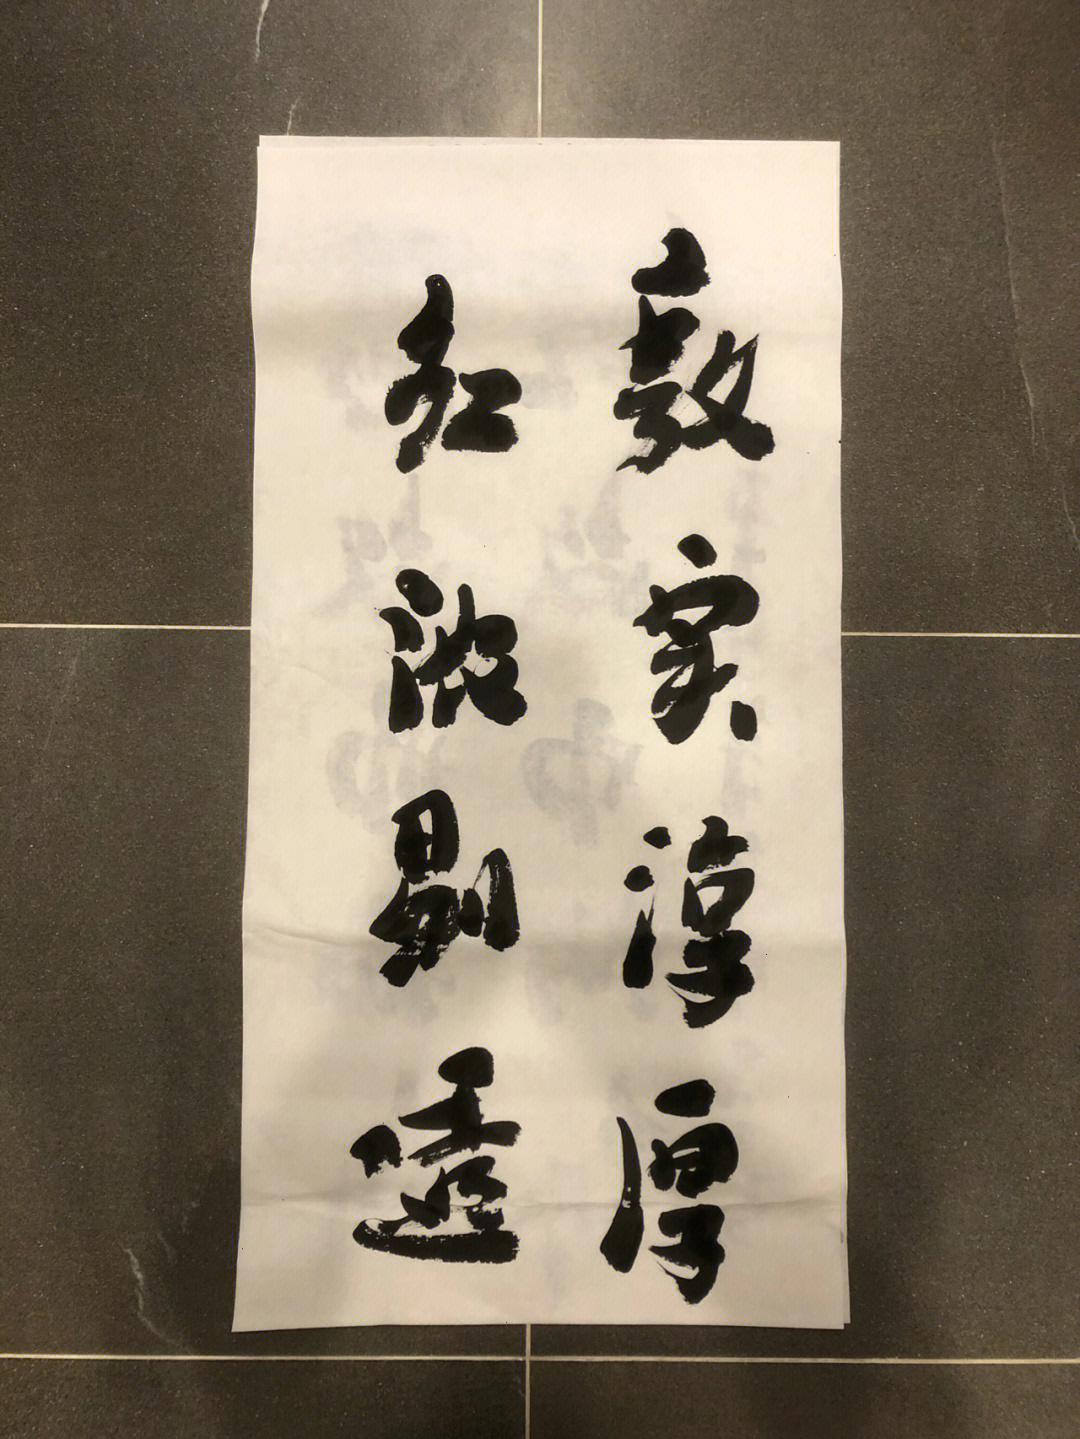 敦实淳厚
红波剔透